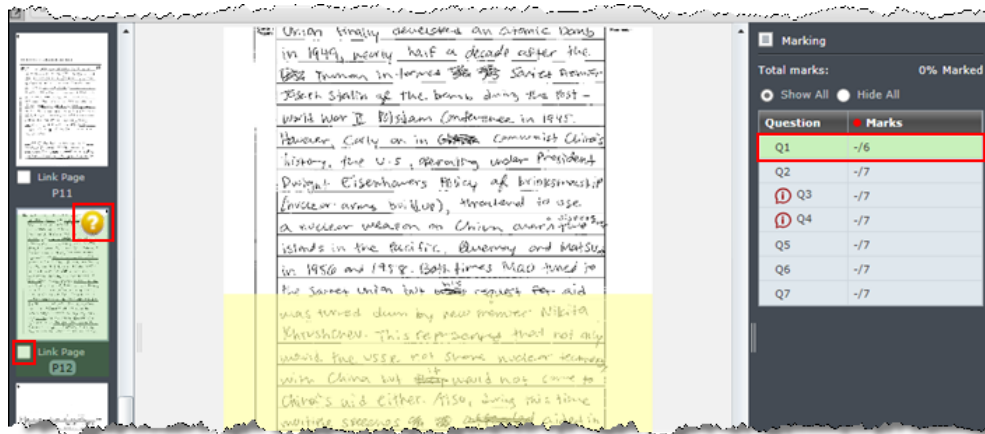 Union finally developed an atomic bomb
in 1949, nearly half a decade after the
Truman informed Soviet Premier
Joseph Stalin of the bomb during the Post-
World War II Potsdam Conference in 1945.
However, Early on in Communist China's
history, the U.S, operating under President
Dwight Eisenhowers Policy of brinksmanship
(nuclear arms buildup), threatened to use
a nuclear weapon on China over
islands in the Pacific, Quemoy and Matsu
in 1956 and 1958. Both times Mao turned to
the Soviet Union but his request for aid
was turned down by new premier Nikita
Khrushchev. This that not only
would the USSR not share nuclear
with China but it would not come to
China's aid either. Also, during this time
aided in
Link Page
P11
Link Page
P12
Marking
Total marks: 0% Marked
Show All Hide All
Question Marks
Q1 -/6
Q2 -/7
Q3 -/7
Q4 -/7
Q5 -/7
Q6 -/7
Q7 -/7